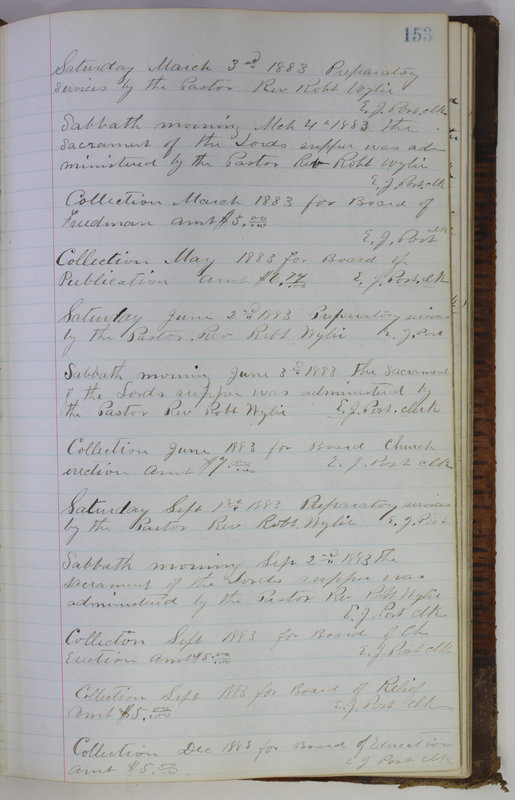 153
Saturday March 3rd 1883 Preparatory
services by the Pastor Rev Robt Wylie
E. J. Post, clk
Sabbath morning Mch 4th 1883 the
Sacrament of the Lords supper was ad-
ministered by the Pastor Rev Robt Wylie
E. J. Post, clk
Collection March 1883 for Board of
Friedman amt $5.00/100
E. J. Post clk
Collection May 1883 for Board of
Publication amt $6.77/100 E. J. Post, clk
Saturday June 2nd 1883 Preparatory services
by the Pastor Rev Robt Wylie E. J. Post
Sabbath morning June 3rd 1883 the Sacrament
of the Lords supper was administered by
the Pastor Rev Robt Wylie E. J. Post, clerk
Collection June 1883 for Board Church
erection amt $7. E. J. Post clk
Saturday Sept 1st 1883 Prepairatory services
by the Pastor Rev Robt Wylie E. J. Post
Sabbath morning Sep 2nd 1883 the
sacrament of the Lords supper was
administered by the Pastor Rev Robt Wylie
E. J. Post clk
Collecton Sept 1883 for Board of Ch
Erection amt $5.00/100 E. J. Post clk
Collection Sept 1883 for Board of Relief
Amt $5.00/100 E. J. Post clk
Collection Dec 1883 for Board of Education
amt $5.00/100 E J Post clk